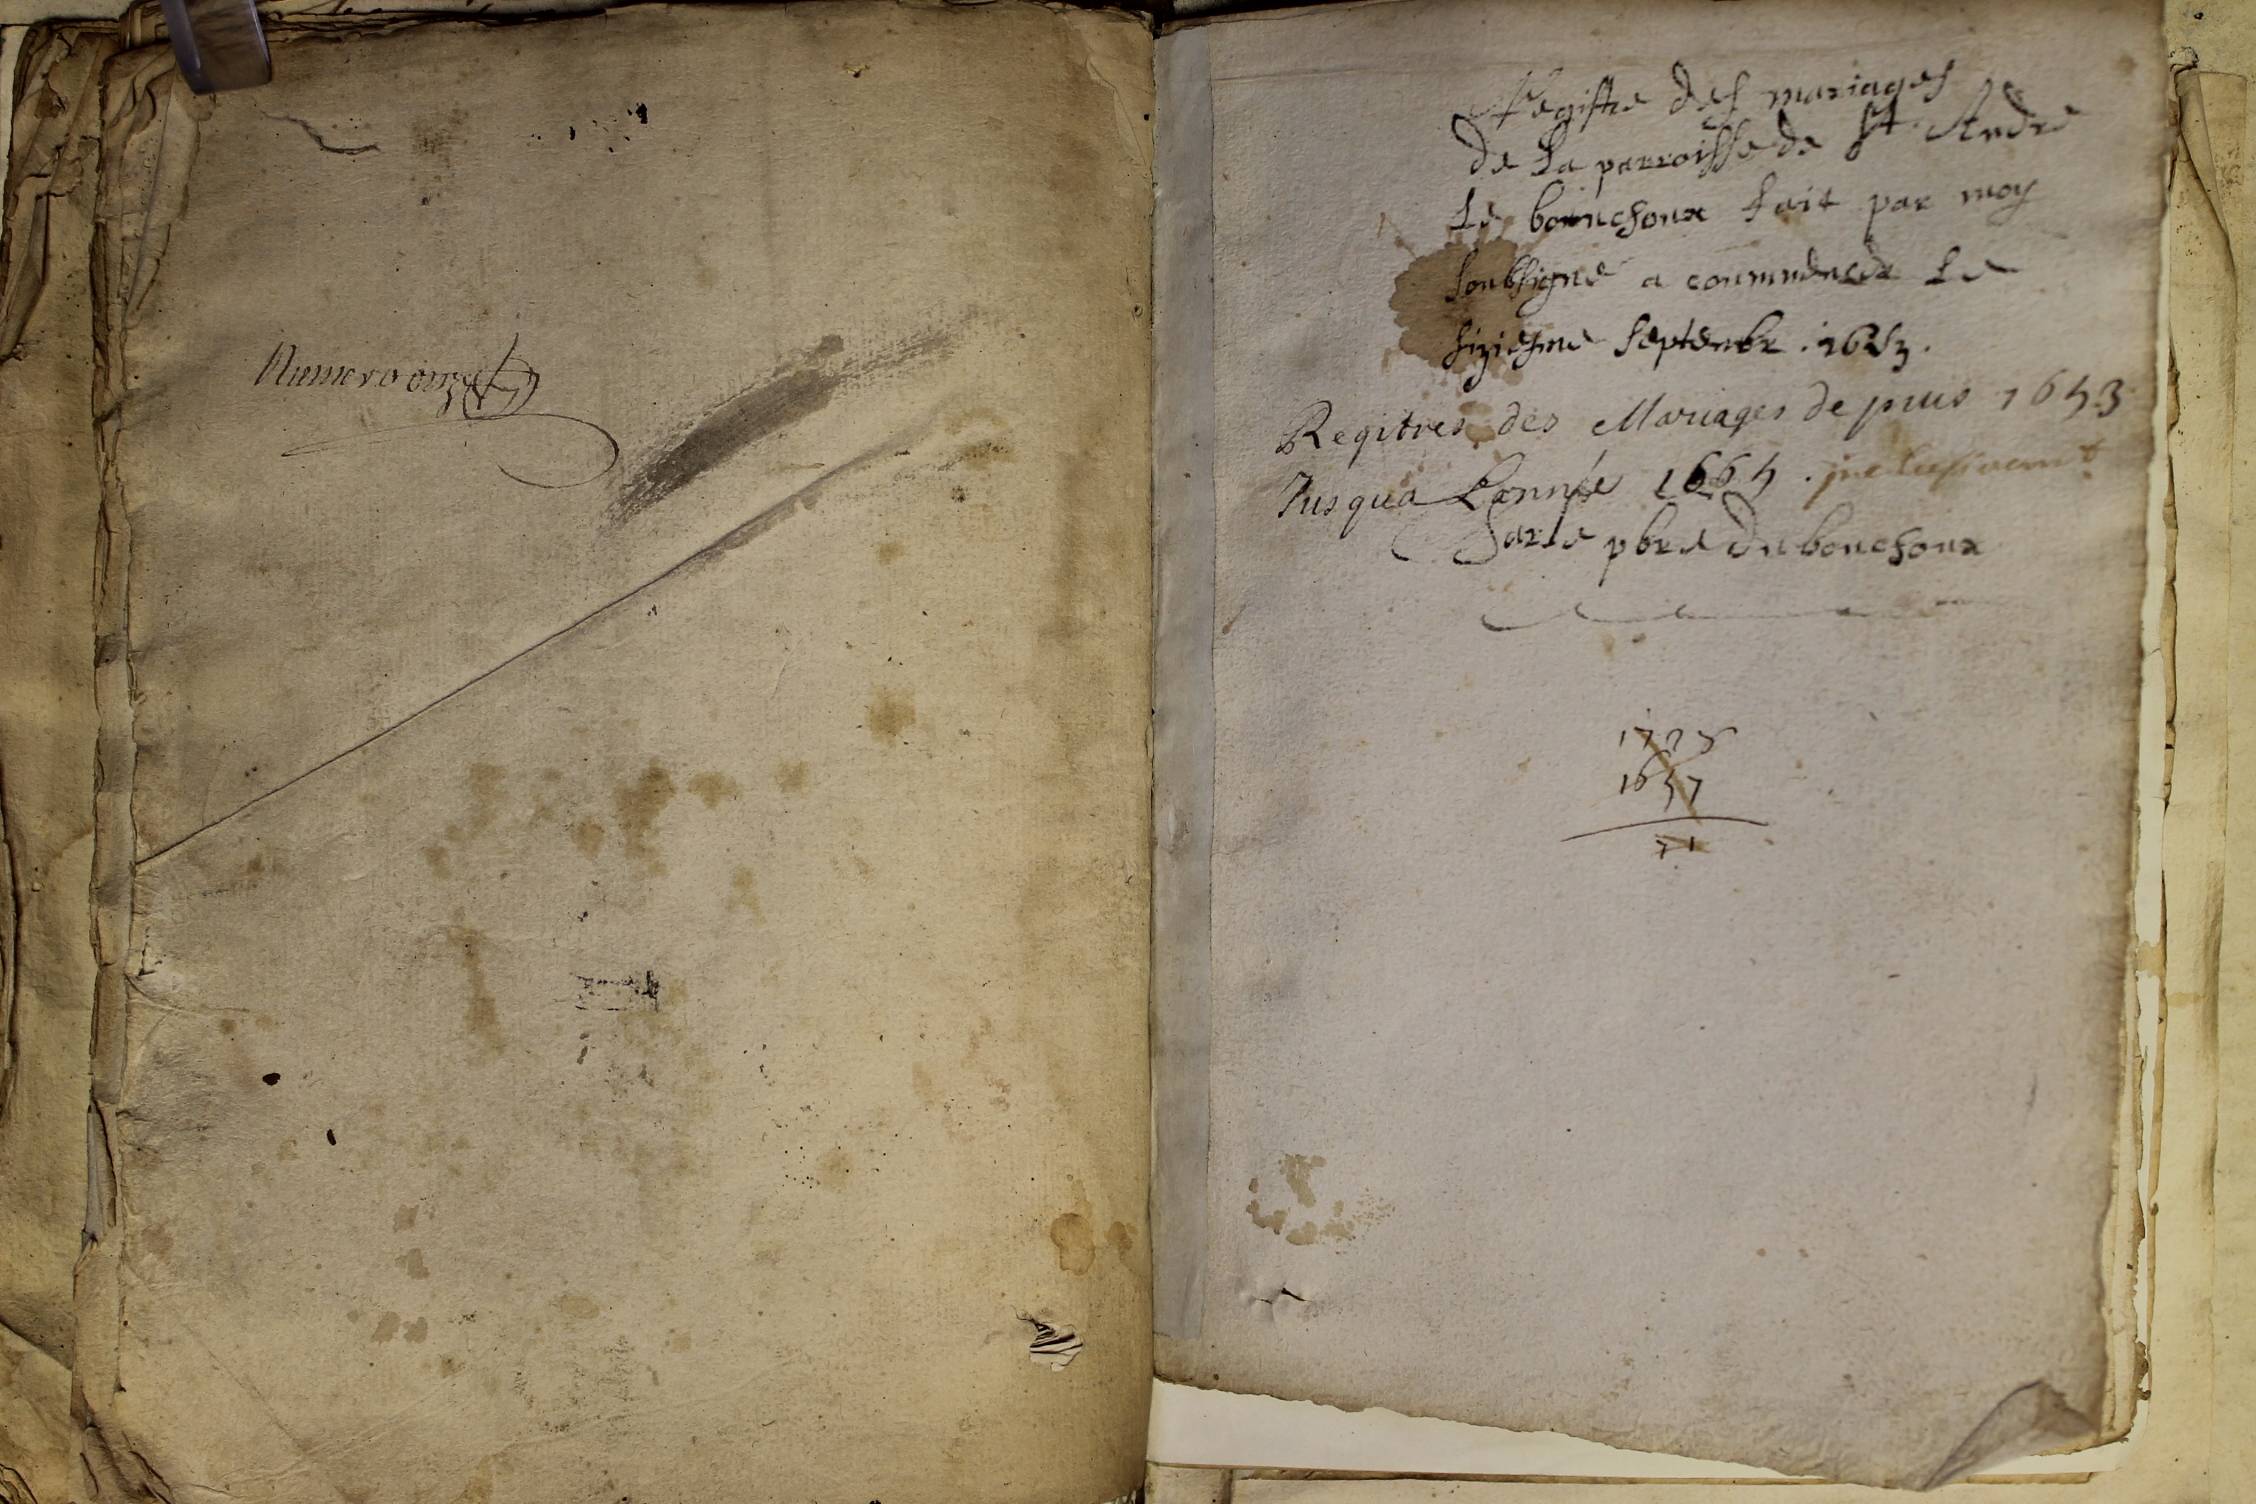 Numero onze
Registre des mariages
de La parroisse de St. Andre
Le bouschoux fait par moy
soubsigné a commencer Le
sixiesme septembr. 1653.
Regitres des Mariages depuis 1653
Jusqua Lannée 1664. inclusivemt
pbre du bouschoux
17
1657
71